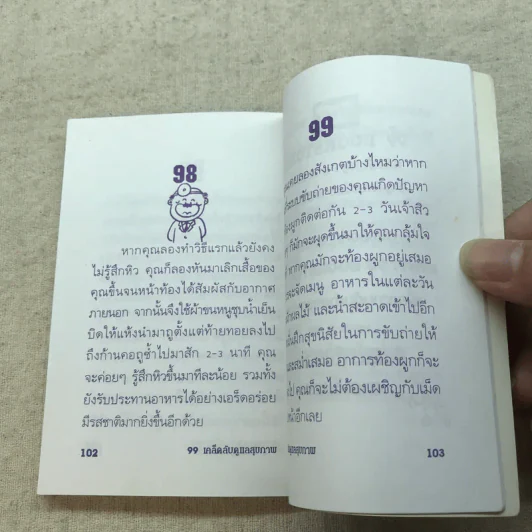 98
หากคุณลองทำวิธีแรกแล้วยังคง
ไม่รู้สึกหิว คุณก็ลองหันมาเลิกเสื้อของ
คุณขึ้นจนหน้าท้องได้สัมผัสกับอากาศ
ภายนอก จากนั้นจึงใช้ผ้าขนหนูชุบน้ำเย็น
บิดให้แห้งนำมาถูตั้งแต่ท้ายทอยลงไป
ถึงก้านคอถูซ้ำไปมาสัก 2-3 นาที คุณ
จะค่อยๆ รู้สึกหิวขึ้นมาทีละน้อย รวมทั้ง
ยังรับประทานอาหารได้อย่างเอร็ดอร่อย
มีรสชาติมากยิ่งขึ้นอีกด้วย
102
99 เคล็ดลับดูแลสุขภาพ
99
เคยลองสังเกตบ้างไหมว่าหาก
ระบบขับถ่ายของคุณเกิดปัญหา
ผูกติดต่อกัน 2-3 วันเจ้าสิว
ก็มักจะผุดขึ้นมาให้คุณกลุ้มใจ
หากคุณมักจะท้องผูกอยู่เสมอ
จะจัดเมนู อาหารในแต่ละวัน
ผลไม้ และน้ำสะอาดเข้าไปอีก
ฝึกสุขนิสัยในการขับถ่ายให้
สม่ำเสมอ อาการท้องผูกก็จะ
ไป คุณก็จะไม่ต้องเผชิญกับเม็ด
อีกเลย
ดูแลสุขภาพ
103